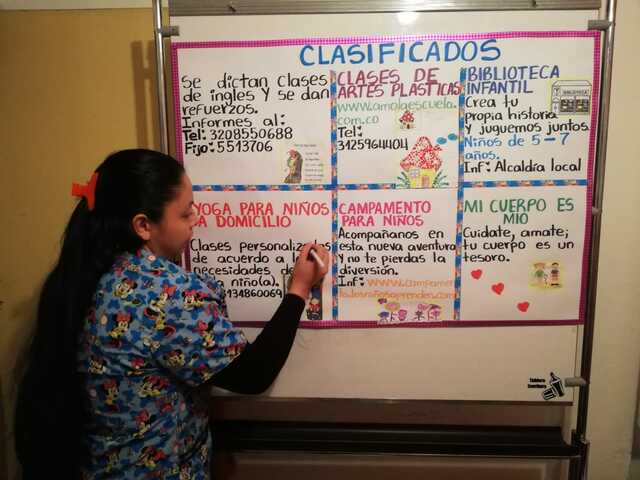 CLASIFICADOS
Se dictan clases
de ingles y se dan
refuerzos.
Informes al:
Tel: 3208550688
Fijo: 5513706
CLASES DE
ARTES PLASTICAS
www.amolaescuela.
com.co
Tel:
BIBLIOTECA
INFANTIL
Crea tu
propia historia
y juguemos juntos.
Niños de 5-7
años.
Inf: Alcaldía local
BIBLIOTECA
YOGA PARA NIÑOS
A DOMICILIO
Clases personalizadas
de acuerdo a las
necesidades de
niño(a).
CAMPAMENTO
PARA NIÑOS
Acompañanos en
esta nueva aventura
y no te pierdas la
diversión.
Inf: www.campamen
MI CUERPO ES
MIO
Cuidate, amate;
tu cuerpo es un
tesoro.
Tablero